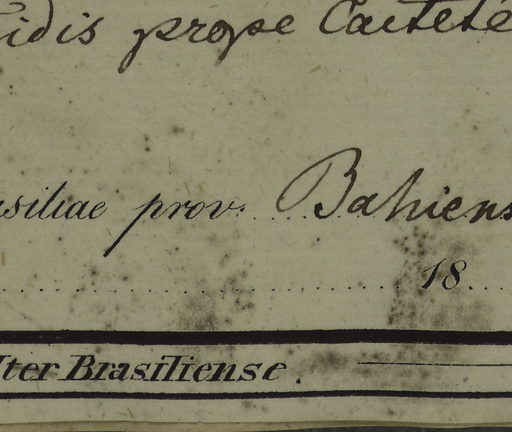 idis prope Caeteté
asiliae prov. Bahiens
18
Iter Brasiliense.